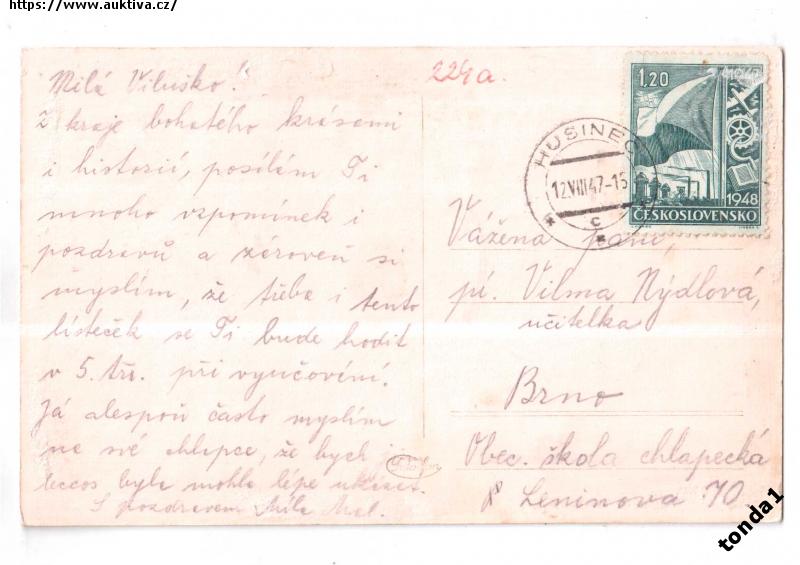 https://www.auktiva.cz/
Milá Vilusko!
z kraje bohatého krásami
i historií, posílám Ti
mnoho vzpomínek i
pozdravů a zároveň si
myslím, že třeba i tento
lísteček se Ti bude hodit
v 5. tř. při vyučování.
Já alespoň často myslím
na své chlapce, že bych j
leccos byla mohla lépe ukázat.
S pozdravem Míla
224a.
1,20
1948
ČESKOSLOVENSKO
HUSINEC
12.VIII.47-15
c
Vážená paní,
pí. Vilma Nýdlová,
učitelka
Brno
Obec. škola chlapecká
Leninova 70
tonda1